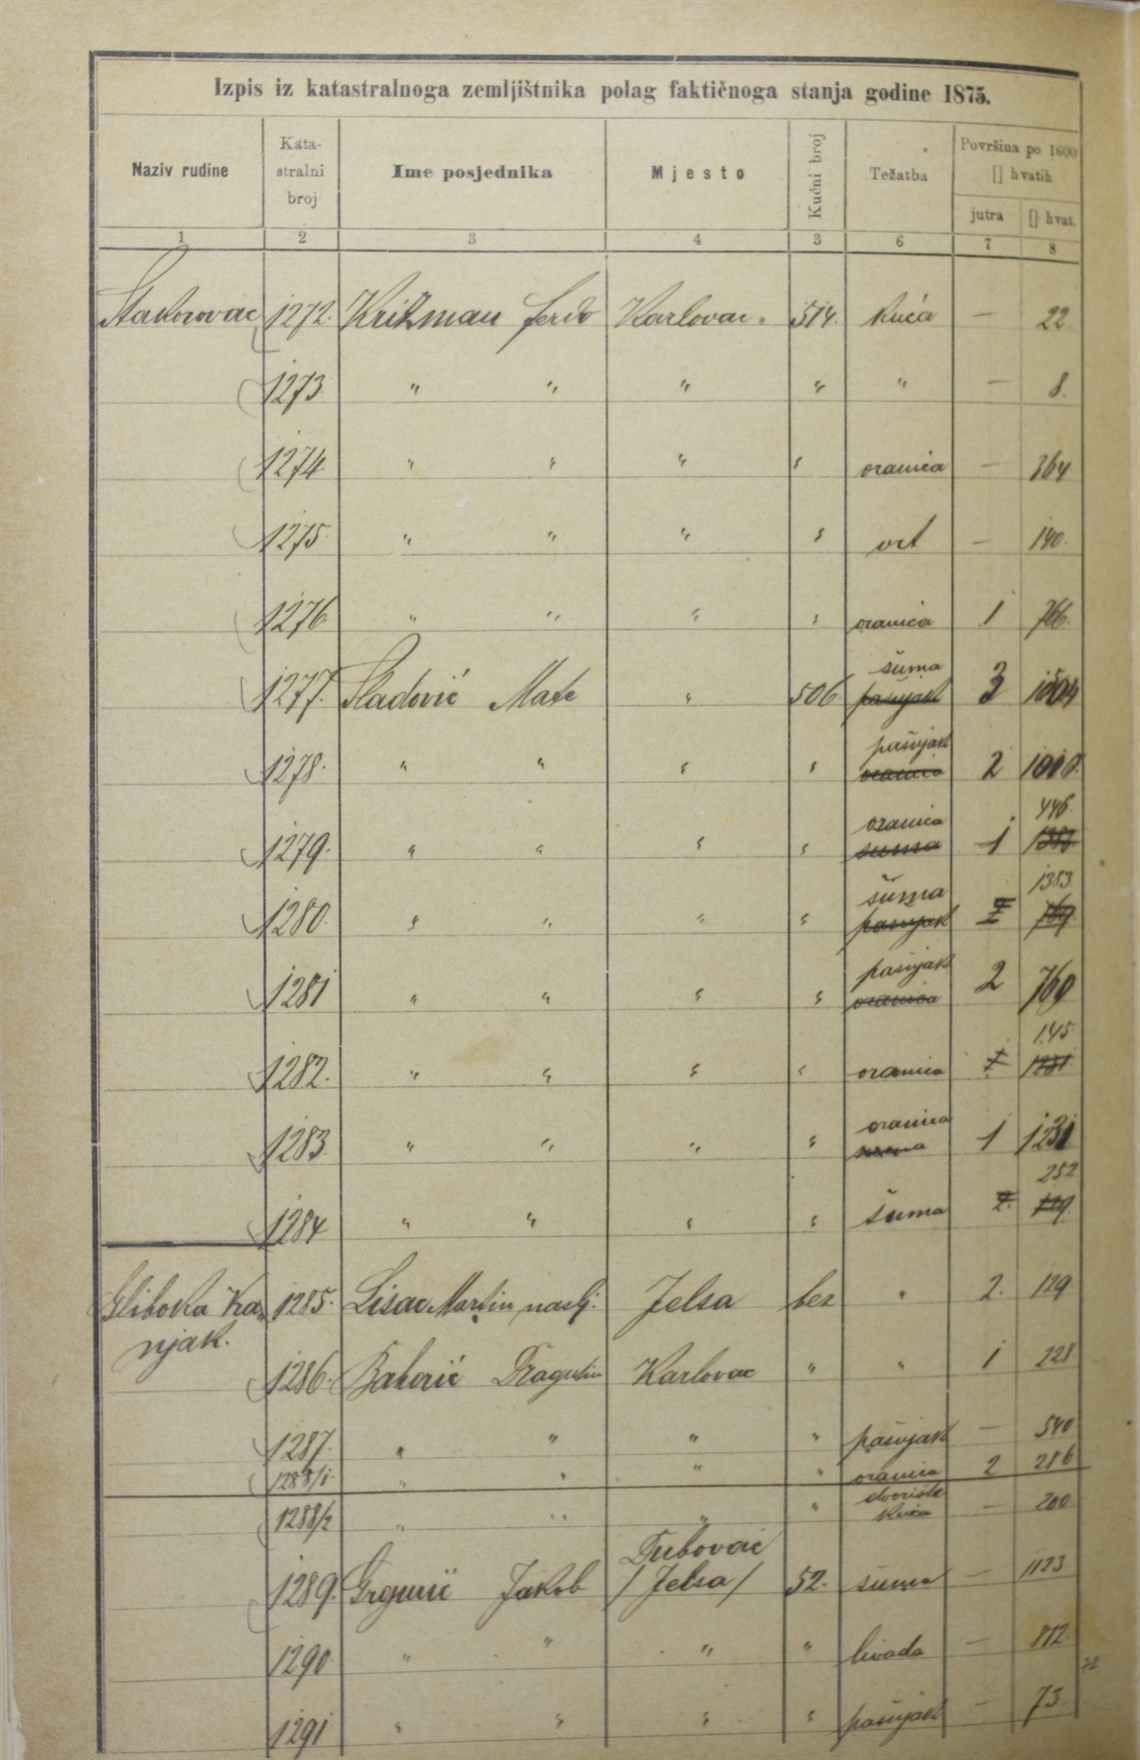 Izpis iz katastralnoga zemljištnika polag faktičnoga stanja godine 1875.
Naziv rudine Kata-stralni broj Ime posjednika Mjesto Kućni broj Težatba Površina po 1600 [] hvatih
jutra [] hvat.
1 2 3 4 3 6 7 8
Stakorovac 1272. Križman Ferdo Karlovac. 514. kuća — 22.
1273 " " " " " — 8.
1274 " " " " oranica — 364
1275. " " " " vrt — 140.
1276 " " " " oranica 1 766.
šuma
1277. Sladović Mate " 506 pašnjak 3 1504
pašnjak
1278. " " " " oranica 2
oranica 446.
1279. " " " " šuma 1 1383
šuma 1383.
1280. " " " " pašnjak 769
pašnjak
1281 " " " " oranica 2 769
145.
1282. " " " " oranica 1231
oranica
1283. " " " " 1 1231
252
1284 " " " " šuma 129
Gliboka Ka- 1285. Lisac Martin naslj. Jelsa bez " 2. 129
njak.
1286. Dragutin Karlovac " " 1 228
1287. " " " " pašnjak — 540
1288/1. " " " " oranica 2 286
dvorište
1288/2 " " " " kuća — 200
Dubovac
1289. Grgurić Jakob /Jelsa/ 52. šuma — 1123
1290. " " " " livada — 812
1291 " " " " pašnjak — 73.